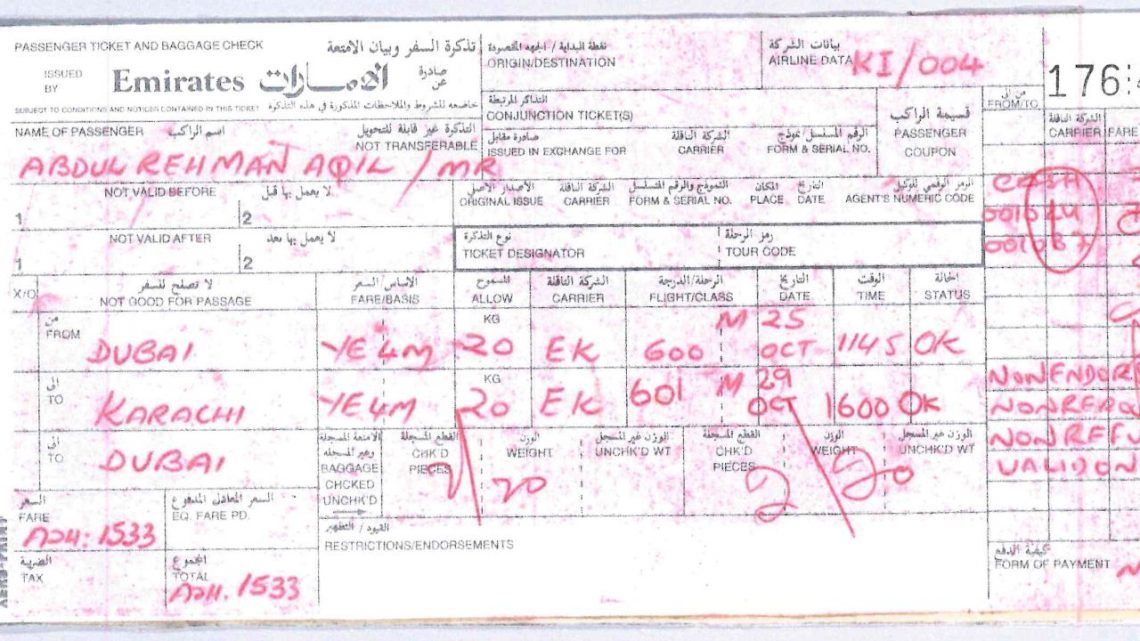 PASSENGER TICKET AND BAGGAGE CHECK تذكرة السفر وبيان الامتعة
ISSUED BY Emirates الامارات صادرة عن
SUBJECT TO CONDITIONS AND NOTICES CONTAINED IN THIS TICKET خاضعه للشروط والملاحظات المذكورة في هذه التذكرة
نقطة البداية / الجهه المقصودة
ORIGIN/DESTINATION
بيانات الشركة
AIRLINE DATA KI/004
176
التذاكر المرتبطة
CONJUNCTION TICKET(S)
قسيمة الراكب
PASSENGER COUPON
من/الى
FROM/TO
الشركة الناقلة
CARRIER FARE
NAME OF PASSENGER اسم الراكب
التذكرة غير قابلة للتحويل
NOT TRANSFERABLE
صادرة مقابل الشركة الناقلة الرقم المسلسل/نموذج
ISSUED IN EXCHANGE FOR CARRIER FORM & SERIAL NO.
ABDUL REHMAN AQIL / MR
NOT VALID BEFORE لا يعمل بها قبل
1 2
الأصدار الأصلي الشركة الناقلة النموذج والرقم المتسلسل المكان التاريخ الرمز الرقمي للوكيل
ORIGINAL ISSUE CARRIER FORM & SERIAL NO. PLACE DATE AGENT'S NUMERIC CODE
NOT VALID AFTER لا يعمل بها بعد
1 2
نوع التذكرة رمز الرحلة
TICKET DESIGNATOR TOUR CODE
X/O
لا تصلح للسفر الاساس السعر المسموح الشركة الناقلة الرحلة/الدرجة التاريخ الوقت الحالة
NOT GOOD FOR PASSAGE FARE/BASIS ALLOW CARRIER FLIGHT/CLASS DATE TIME STATUS
من FROM DUBAI YE4M 20 KG EK 600 M 25 OCT 1145 OK
الى TO KARACHI YE4M 20 KG EK 601 M 29 OCT 1600 OK
NONREFU
VALID ON
الى TO DUBAI
الامتعة المسجلة وغير المسجله
BAGGAGE CHCKED UNCHK'D
القطع المسجلة الوزن الوزن غير المسجل القطع المسجلة الوزن الوزن غير المسجل
CHK'D PIECES WEIGHT UNCHK'D WT CHK'D PIECES WEIGHT UNCHK'D WT
20 2 20
السعر
FARE
السعر المعادل المدفوع
EQ. FARE PD.
1533
القيود / التظهير
RESTRICTIONS/ENDORSEMENTS
الضريبة
TAX
المجموع
TOTAL
1533
كيفية الدفع
FORM OF PAYMENT